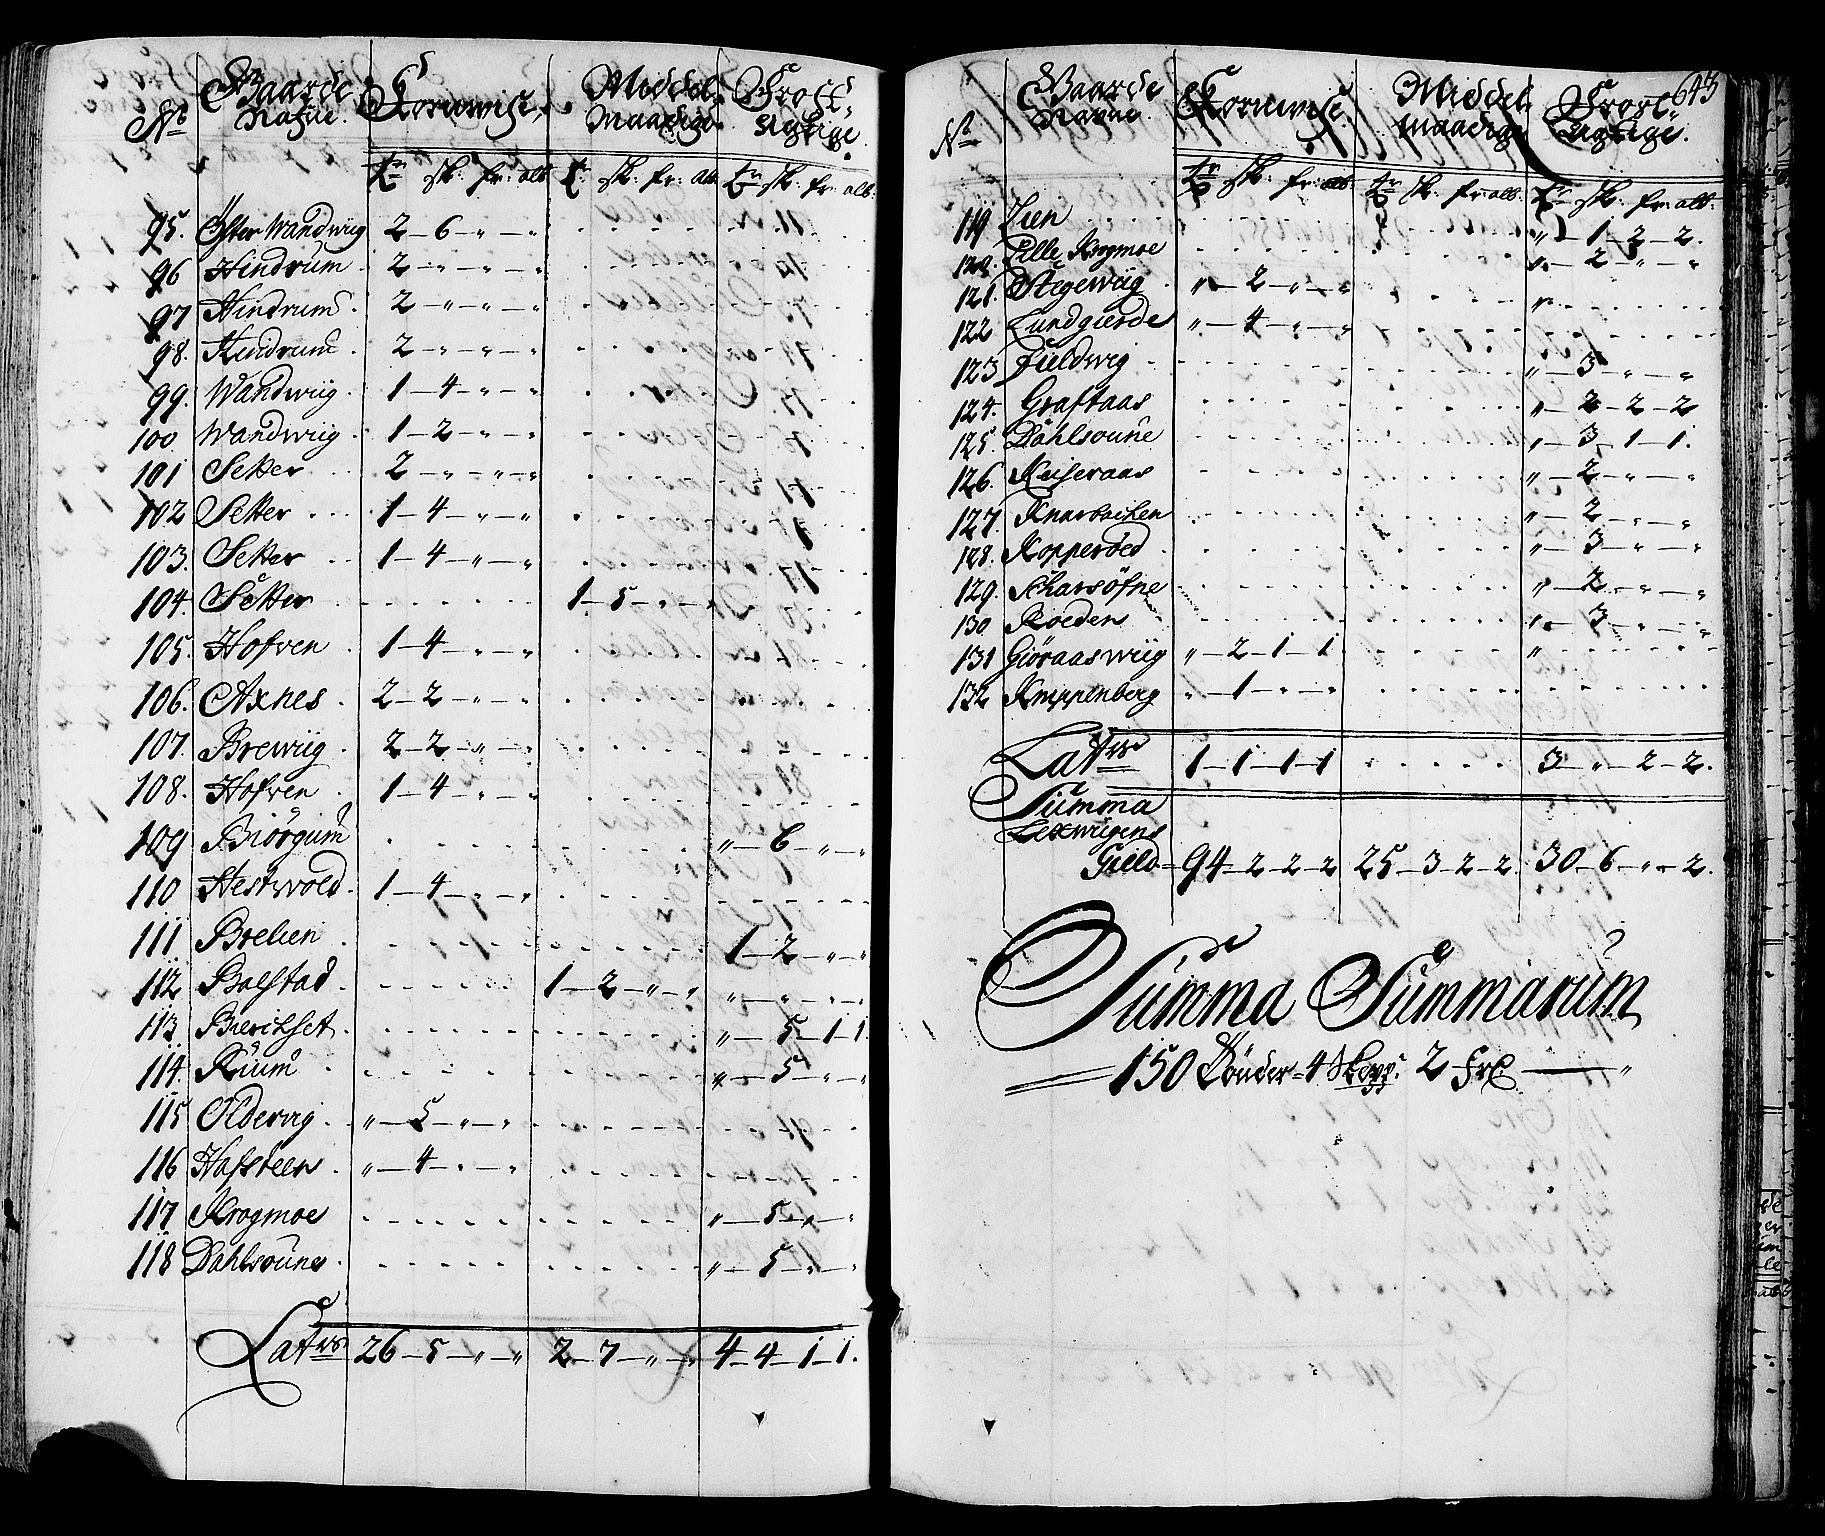 No Gaarde Nafne. Kornwise, Middel maadige Frost Agtige.
tr sk: fr: alb tr: sk: fr: alb tr sk: fr: alb:
95. Öster Wandwiig 2 – 6 – „ – „
96 Hindrum 2 – „ – „ – „
97 Hindrum 2 – „ – „ – „
98. Hindrum 2 – „ – „ – „
99. Wandwiig 1 – 4 – „ – „
100 Wandwiig 1 – 2 – „ – „
101 Setter 2 – „ – „ – „
102 Setter 1 – 4 – „ – „
103. Setter 1 – 4 – „ – „
104. Setter 1 – 5 – „ – „
105. Hofven 1 – 4 – „ – „
106. Axnes 2 – 2 – „ – „
107. Brewiig 2 – 2 – „ – „
108. Hofven 1 – 4 – „ – „
109 Biörgum „ – 6 – „ – „
110 Hestwold 1 – 4 – „ – „
111 Brelien 1 – 2 – „ – „
112 Balstad 1 – 2 – „ – „ „ – „ – „ – „
113. Bierikset „ – 5 – 1 – 1
114. Rium „ – 5 – „ – „
115 Oldervig „ – 5 – „ – „
116 Hafsteen „ – 4 – „ – „
117 Krogmoe „ – 5 – „ – „
118 Dahlsoune „ – 5 – „ – „
Latrs 26 – 5 – „ – „ 2 – 7 – „ – „ 4 – 4 – 1 – 1.
643
No Gaarde Nafne. Kornwise. Middel maadige Frost Agtige.
tr sk: fr: alb tr sk: fr: alb: tr sk: fr: alb:
119 Lien „ – 1 – 2 – 2.
120. Lille Krogmoe „ – 2 – „ – „
121. Stegewiig „ – 2 – „ – „ „
122 Lundgierde „ – 4 – „ – „
123 Fieldwig „ – 3 – „ – „
124. Graftaas „ – 2 – 2 – 2
125. Dahlsoune „ – 3 – 1 – 1.
126. Keiseraas „ – 2 – „ – „
127. Knarbacken „ – 2 – „ – „
128. Kopperoed „ – 3 – „ – „
129. Scharsöfne „ – 2 – „ – „
130 Roeden „ – 3 – „ – „
131 Giöraaswiig „ – 2 – 1 – 1 „
132 Knippenberg „ – 1 – „ – „
Latrs 1 – 1 – 1 – 1 3 – „ – 2 – 2.
Summa
Lexwigens
Gield 94 – 2 – 2 – 2 25 – 3 – 2 – 2. 30 – 6 – „ – 2.
Summa Summarum
150 Tönder – 4 Skepp: 2 Frk „